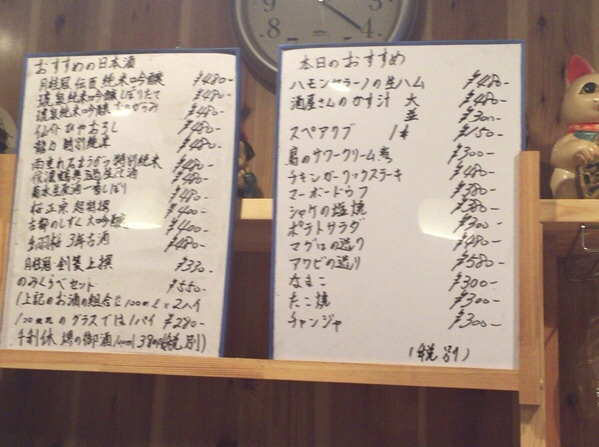 おすすめの日本酒
月桂冠 伝匠 純米吟醸 ¥480-
瑞泉純米吟醸しぼりたて ¥480-
瑞泉純米吟醸 ¥480-
仙介 ひやおろし ¥480-
龍力 特別純米 ¥480-
雨きれ石まうがつ特別純米 ¥480-
信濃鶴無濾過生酒 ¥480-
菊水生原酒一番しぼり ¥480-
桜正宗 超特撰 ¥400-
古都のしずく 大吟醸 ¥400-
出羽桜 3年古酒 ¥480-
月桂冠 別製上撰 ¥330-
のみくらべセット ¥550-
(上記のお酒の組合せ100ml×2ハイ
100mlのグラスでは1パイ ¥290-
千利休 堺の御酒100ml 390円税別)
本日のおすすめ
ハモンセラーノの生ハム ¥480-
酒屋さんのかす汁 大 ¥480-
並 ¥300-
スペアリブ 1本 ¥150-
鳥のサワークリーム煮 ¥300-
チキンガーリックステーキ ¥480-
マーボードウフ ¥380-
シャケの塩焼 ¥380-
ポテトサラダ ¥300-
マグロの造り ¥480-
アワビの造り ¥580-
なまこ ¥300-
たこ焼 ¥300-
チャンジャ ¥300-
(税別)
8
9
3
4